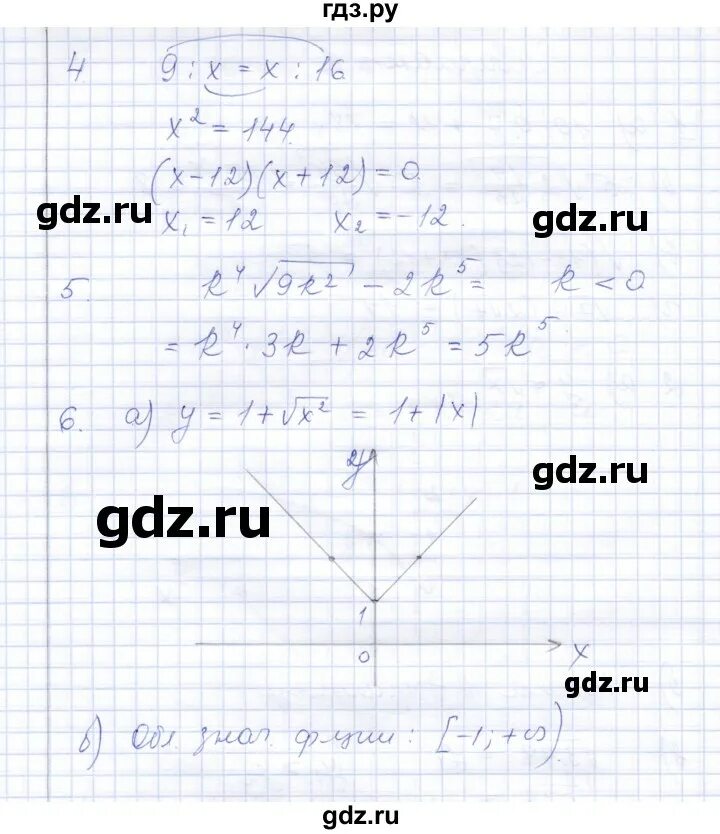 гдз.ру
4 9 : x = x : 16
x² = 144.
(x-12)(x+12)=0.
gdz.ru
x₁ = 12 x₂ = -12.
gdz.ru
5. k⁴ √9k² - 2k⁵ = k < 0
= k⁴ · 3k + 2k⁵ = 5k⁵.
6. а) y = 1 + √x² = 1 + |x|
y
gdz.ru
gdz.ru
1
0
x
gdz.ru
б) Обл. знач. фции: [-1; +∞).
gdz.ru